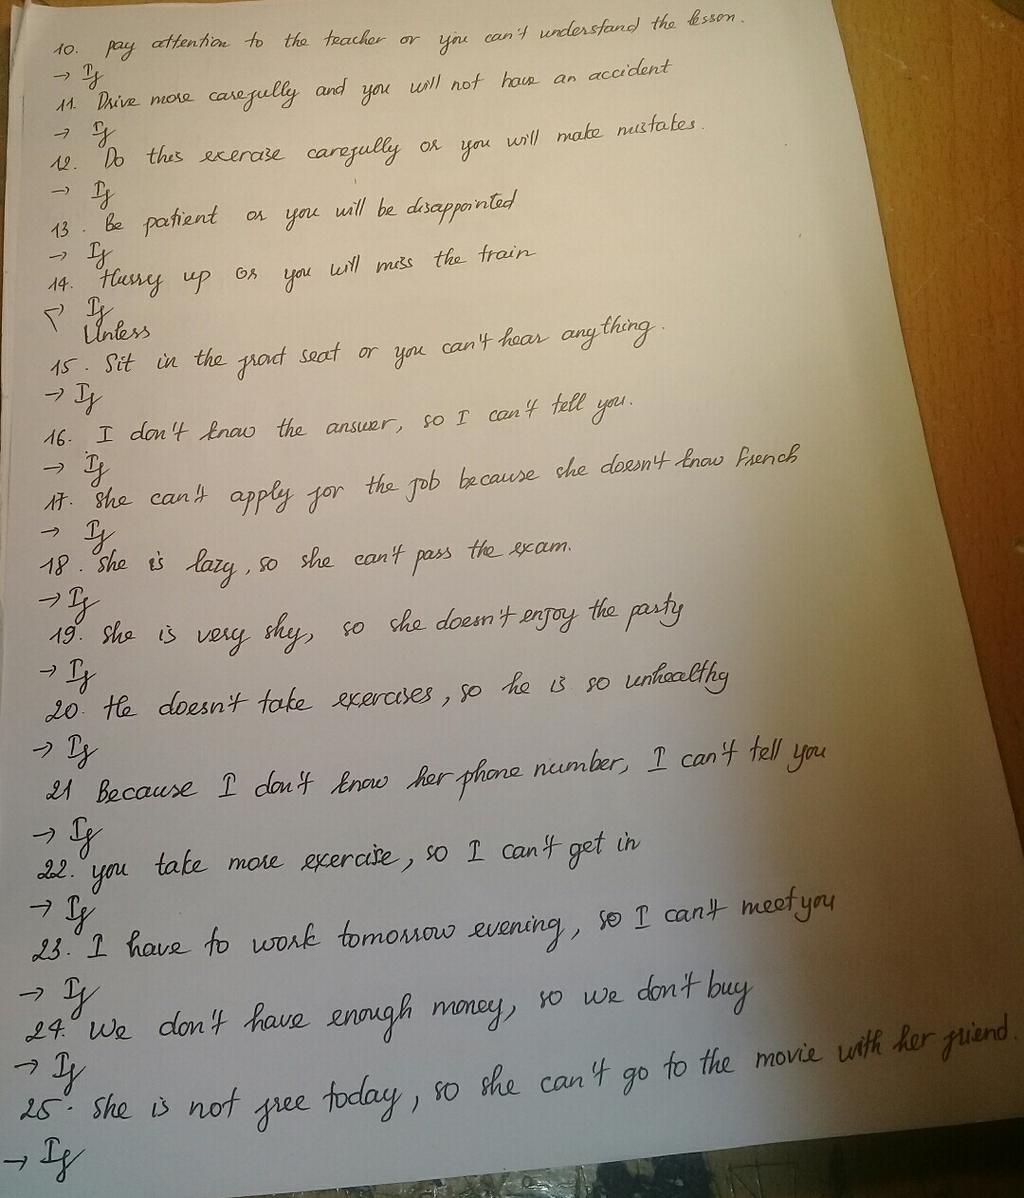 10. pay attention to the teacher or you can't understand the lesson.
→ If
11. Drive more carefully and you will not have an accident
→ If
12. Do this exercise carefully or you will make mistakes.
→ If
13. Be patient or you will be disappointed
→ If
14. Hurry up or you will miss the train
→ If
Unless
15. Sit in the front seat or you can't hear anything.
→ If
16. I don't know the answer, so I can't tell you.
→ If
17. she can't apply for the job because she doesn't know french
→ If
18. she is lazy, so she can't pass the exam.
→ If
19. she is very shy, so she doesn't enjoy the party
→ If
20. He doesn't take exercises, so he is so unhealthy
→ If
21 Because I don't know her phone number, I can't tell you
→ If
22. you take more exercise, so I can't get in
→ If
23. I have to work tomorrow evening, so I can't meet you
→ If
24. We don't have enough money, so we don't buy
→ If
25. she is not free today, so she can't go to the movie with her friend.
→ If